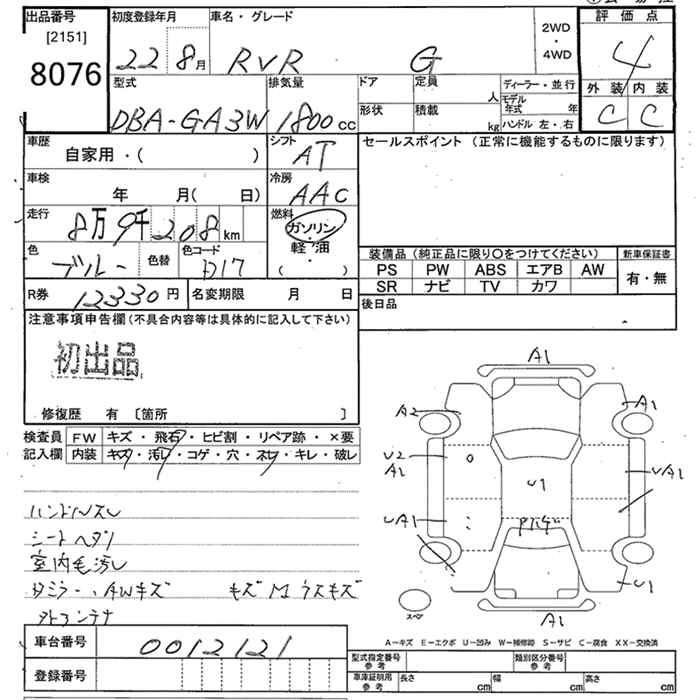 出品番号
[2151]
8076
初度登録年月
22 8月
車名・グレード
RVR G
2WD
・
4WD
評価点
4
外装 内装
C C
型式
DBA-GA3W
排気量
1800 cc
ドア
定員
人
形状
積載
kg
ディーラー・並行
モデル年式 年
ハンドル 左・右
車歴
自家用・( )
シフト
AT
セールスポイント (正常に機能するものに限ります)
車検
年 月( 日)
冷房
AAC
走行
8万9千208km
燃料
ガソリン
軽油
・
( )
色
ブルー
色替
色コード
D17
装備品 (純正品に限り〇をつけてください)
PS PW ABS エアB AW
SR ナビ TV カワ
新車保証書
有・無
R券 12330円
名変期限 月 日
後日品
注意事項申告欄 (不具合内容等は具体的に記入して下さい)
初出品
修復歴 有 〔箇所 〕
検査員
記入欄
FW キズ・飛石・ヒビ割・リペア跡・×要
内装 キズ・汚レ・コゲ・穴・スレ・キレ・破レ
ハンドルスレ
シートヘタリ
室内毛汚レ
AWキズ
A1
A2
A1
U2
A1
U1
UA1
UA1
U1
A1
スペア
A-キズ E-エクボ U-凹み W-補修跡 S-サビ C-腐食 XX-交換済
車台番号
0012121
登録番号
型式指定番号
参考
類別区分番号
参考
車庫証明用
参考
長さ cm
幅 cm
高さ cm